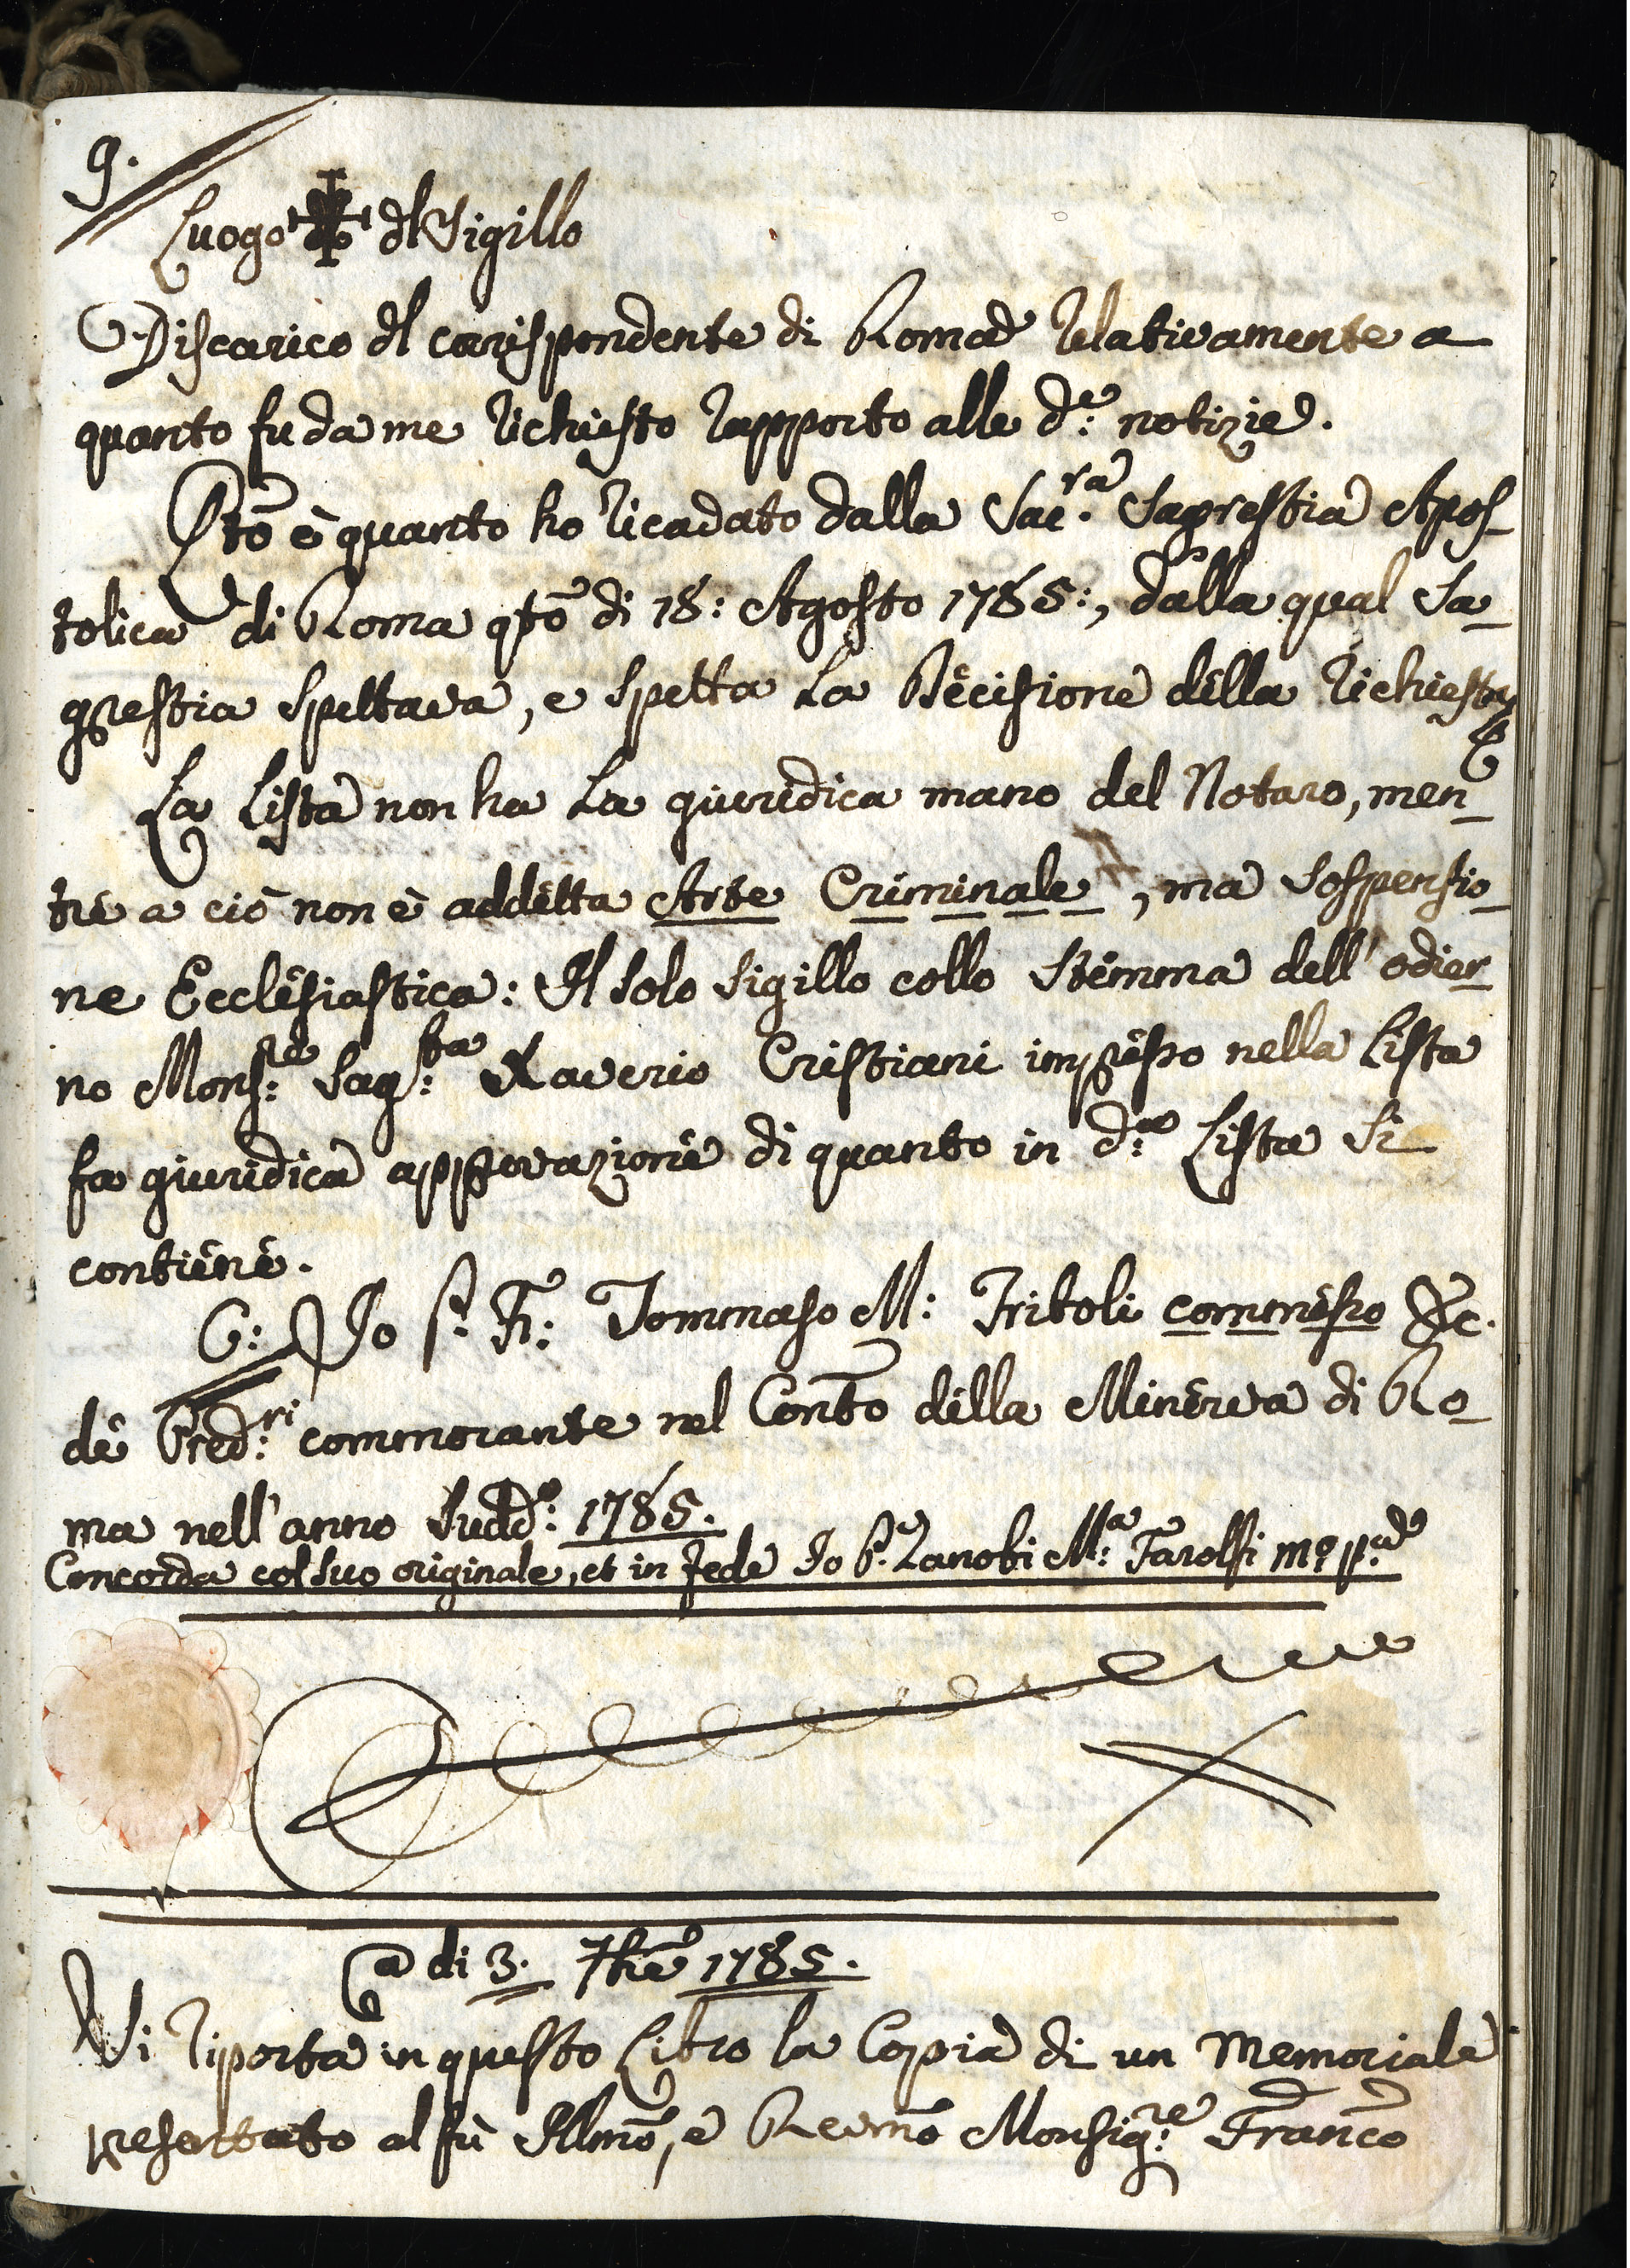 9.
Luogo ✠ dl Sigillo
Discarico dl corrispondente di Roma relativamente a
quanto fu da me richiesto rapporto alle d.e notizie.
Qto è quanto ho ricadato dalla Sac.ra Sagrestia Apos-
tolica di Roma qto di 18: Agosto 1785:, dalla qual Sa-
grestia spettava, e spetta la Decisione della richiesta
La Lista non ha la giuridica mano del Notaro, men-
tre a ciò non è addetta Arte Criminale, ma sospensio-
ne Ecclesiastica: Il solo Sigillo collo Stemma dell' odier-
no Mons:re Sag:sta Xaverio Cristiani impresso nella Lista
fa giuridica approvazione di quanto in d:a Lista si
contiene.
Io F. Fr: Tommaso M: Tritoli commesso &c.
de Pred:ri commorante nel Conto della Minerva di Ro-
ma nell'anno sudd:o 1785.
Concorda col suo originale, et in fede Io P. Zanobi M:a Tarolfi mo pa
@ di 3. 7bre 1785.
Si riporta in questo Libro la Copia di un Memoriale
presentato al fù Illmo, e Revmo Monsig:re Franco